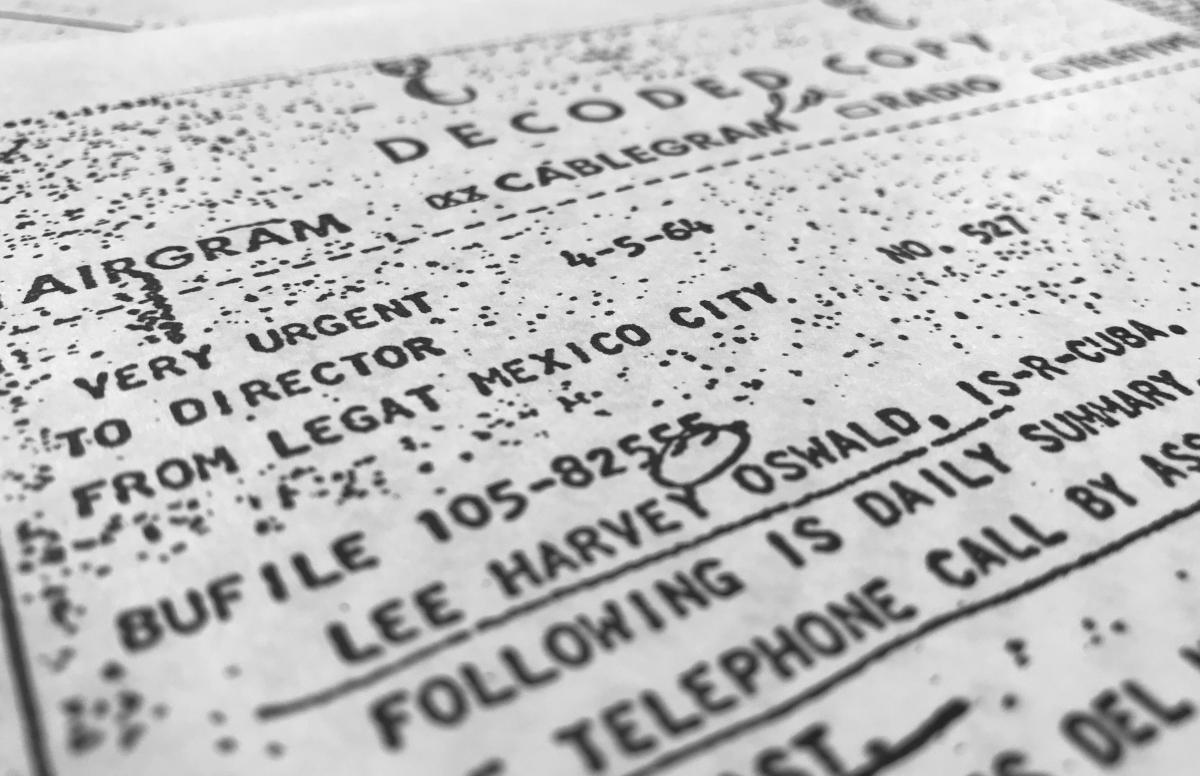 DECODED COPY
AIRGRAM XX CABLEGRAM RADIO
4-5-64 NO. 527
VERY URGENT
TO DIRECTOR
FROM LEGAT MEXICO CITY
BUFILE 105-82555
LEE HARVEY OSWALD, IS-R-CUBA.
FOLLOWING IS DAILY SUMMARY.
TELEPHONE CALL BY
DEL